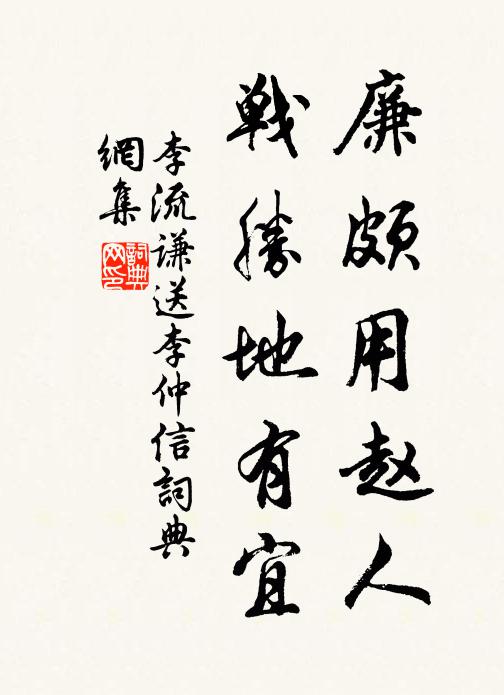 廉頗用赵人
戦勝地有宜
李流谦送李仲信詞典
網集
詞典
网印